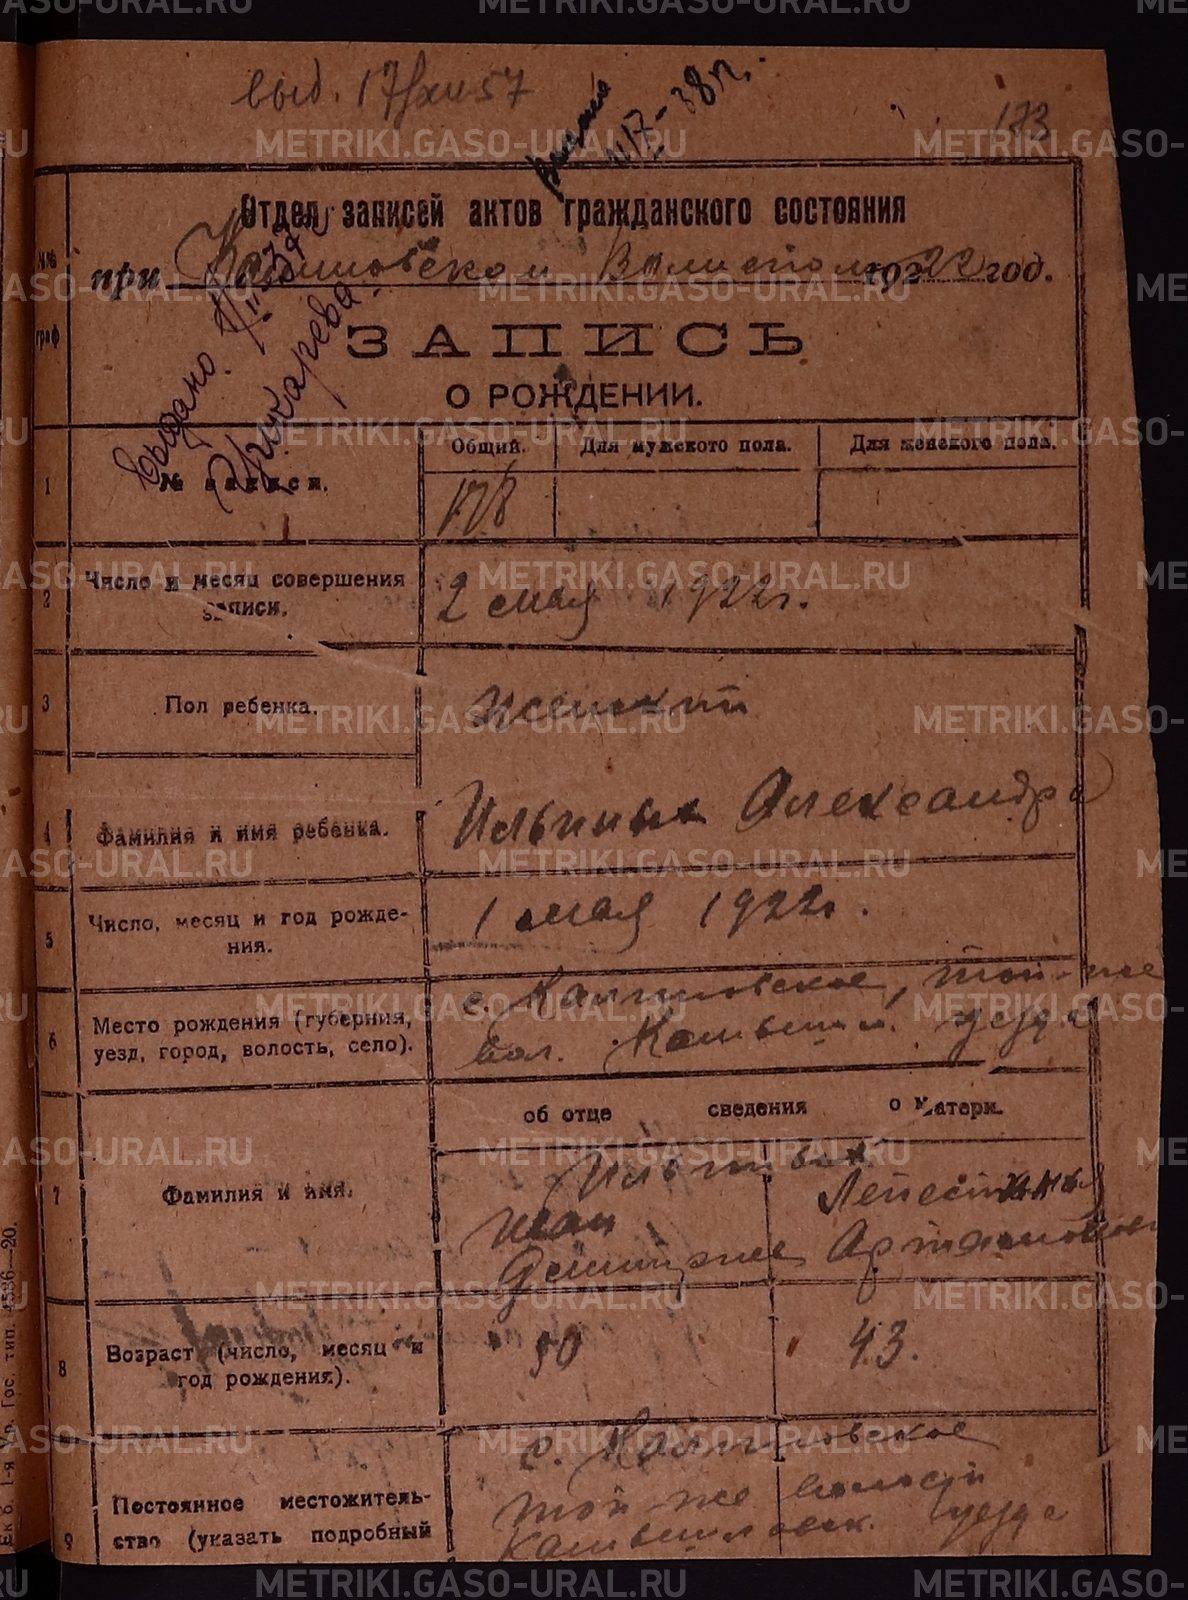 выд. 17/XII 57
173
Отдел записей актов гражданского состояния
при Калиновском Волисполк 1922 год.
№№ граф
ЗАПИСЬ
О РОЖДЕНИИ.
Выдано.
Общий. Для мужского пола. Для женского пола.
1 № записи. 178
2 Число и месяц совершения
записи. 2 мая 1922 г.
3 Пол ребенка. женский
4 Фамилия и имя ребенка. Ильиных Александра
5 Число, месяц и год рожде-
ния. 1 мая 1922 г.
6 Место рождения (губерния, с. Калиновское, той-же
уезд, город, волость, село). вол. Камышл. уезда
об отце сведения о матери.
7 Фамилия и имя. Ильиных
Иван
8 Возраст (число, месяц и
год рождения). 50 43.
9 Постоянное местожитель-
ство (указать подробный
с. Калиновское
той же волости
Камышловск. уезда
Ек б. 1-я Ур. Гос. тип. 4586—20.
METRIKI.GASO-URAL.RU